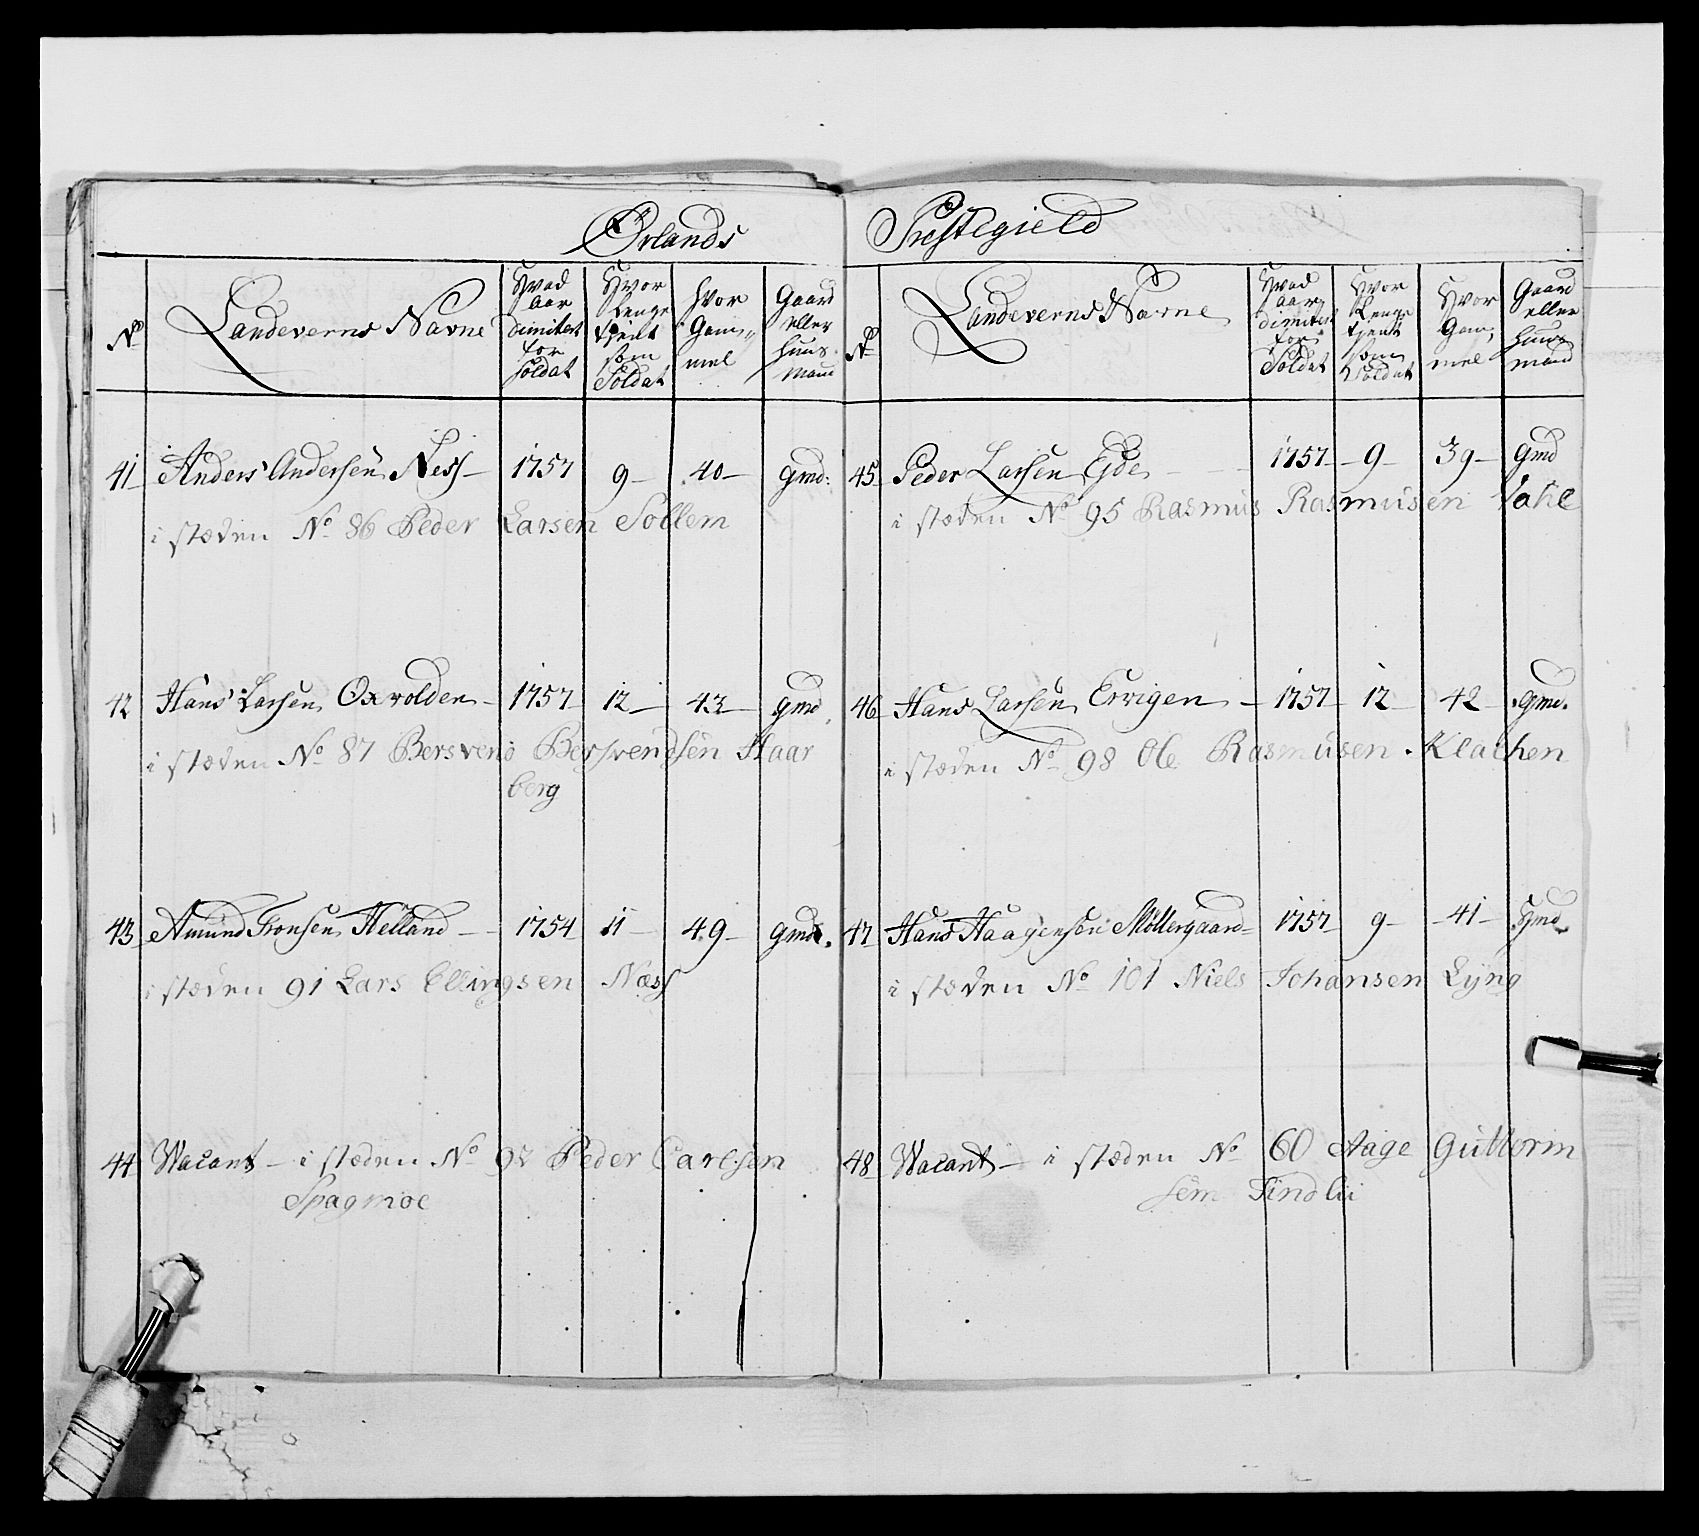 Ørlands Præstegield
No Landeverns Navne Hvad Aar dimitert for Soldat Hvor Lenge tjent som Soldat Hvor Gammel Gaard eller Huusmand
41 Anders Andersen Ness 1757 9 40 gmd:
i stæden No 86 Peder Larsen Sollem
42 Hans Larsen Oxvolden 1757 12 43 gmd
i stæden No 87 Bersvend Bersvendsen Haar
berg
43 Amund Tronsen Helland 1754 11 49 gmd.
i stæden 91 Lars Ellingsen Næss
44 Vacant i stæden No 92 Peder Carlsen
Spagmoe
No Landeverns Navne Hvad Aar dimitert for Soldat Hvor Lenge tjent som Soldat Hvor Gammel Gaard eller Huusmand
45 Peder Larsen Eide 1757 9 39 gmd
i stæden No 95 Rasmus Rasmusen
46 Hans Larsen Ervigen 1757 12 42 gmd.
i stæden No 98 Ole Rasmusen Klakken
47 Hans Haagensen Möllergaard 1757 9 41 gmd
i stæden No 101 Niels Johansen Lyng
48 Vacant i stæden No 60 Aage Guttorm
sen